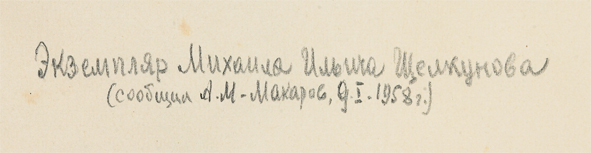 Экземпляр Михаила Ильича Щелкунова
(сообщил А.М-Макаров, 9.I.1958г.)